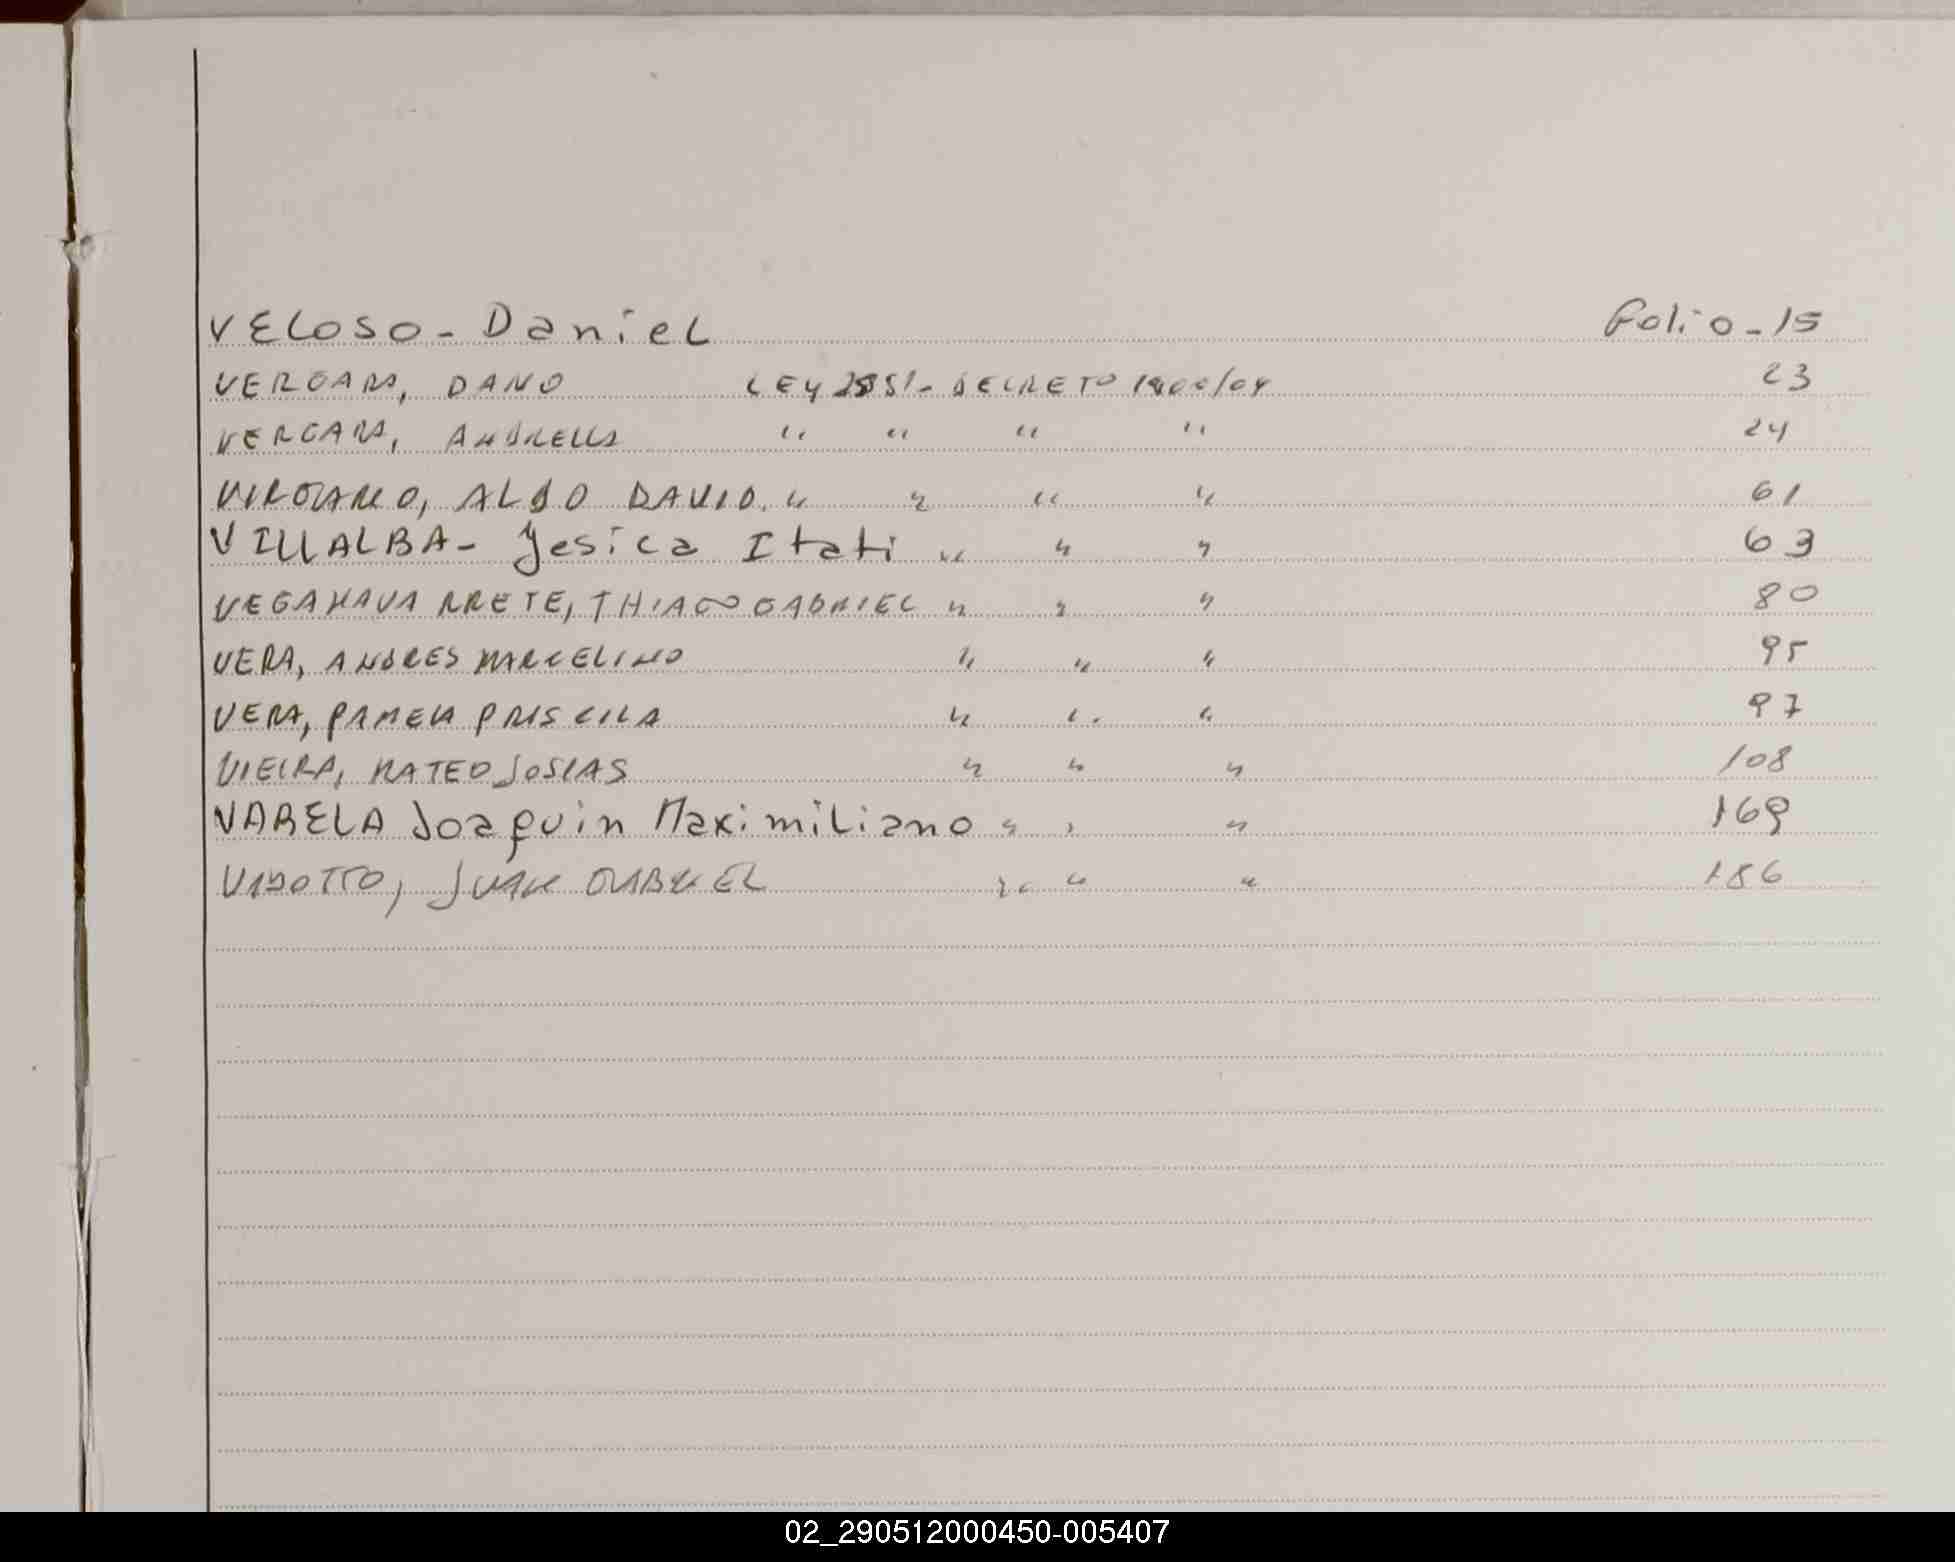 VELOSO - Daniel Folio - 15
VERGARA, DANO LEY 2851 - DECRETO 1800/04 23
VERGARA, ANDRELLA " " " " 24
VIRGIARO, ALDO DAVID. " " " " 61
VILLALBA - Jesica Itati " " " 63
VEGANAVARRETE, THIAGO GABRIEL " " " 80
VERA, ANDRES MARCELINO " " " 95
VERA, PAMELA PRISCILA " " " 97
VIEIRA, MATEO JOSIAS " " " 108
VARELA Joaquin Maximiliano " " " 169
VIDOTTO, JUAN GABRIEL " " " 186
02_290512000450-005407